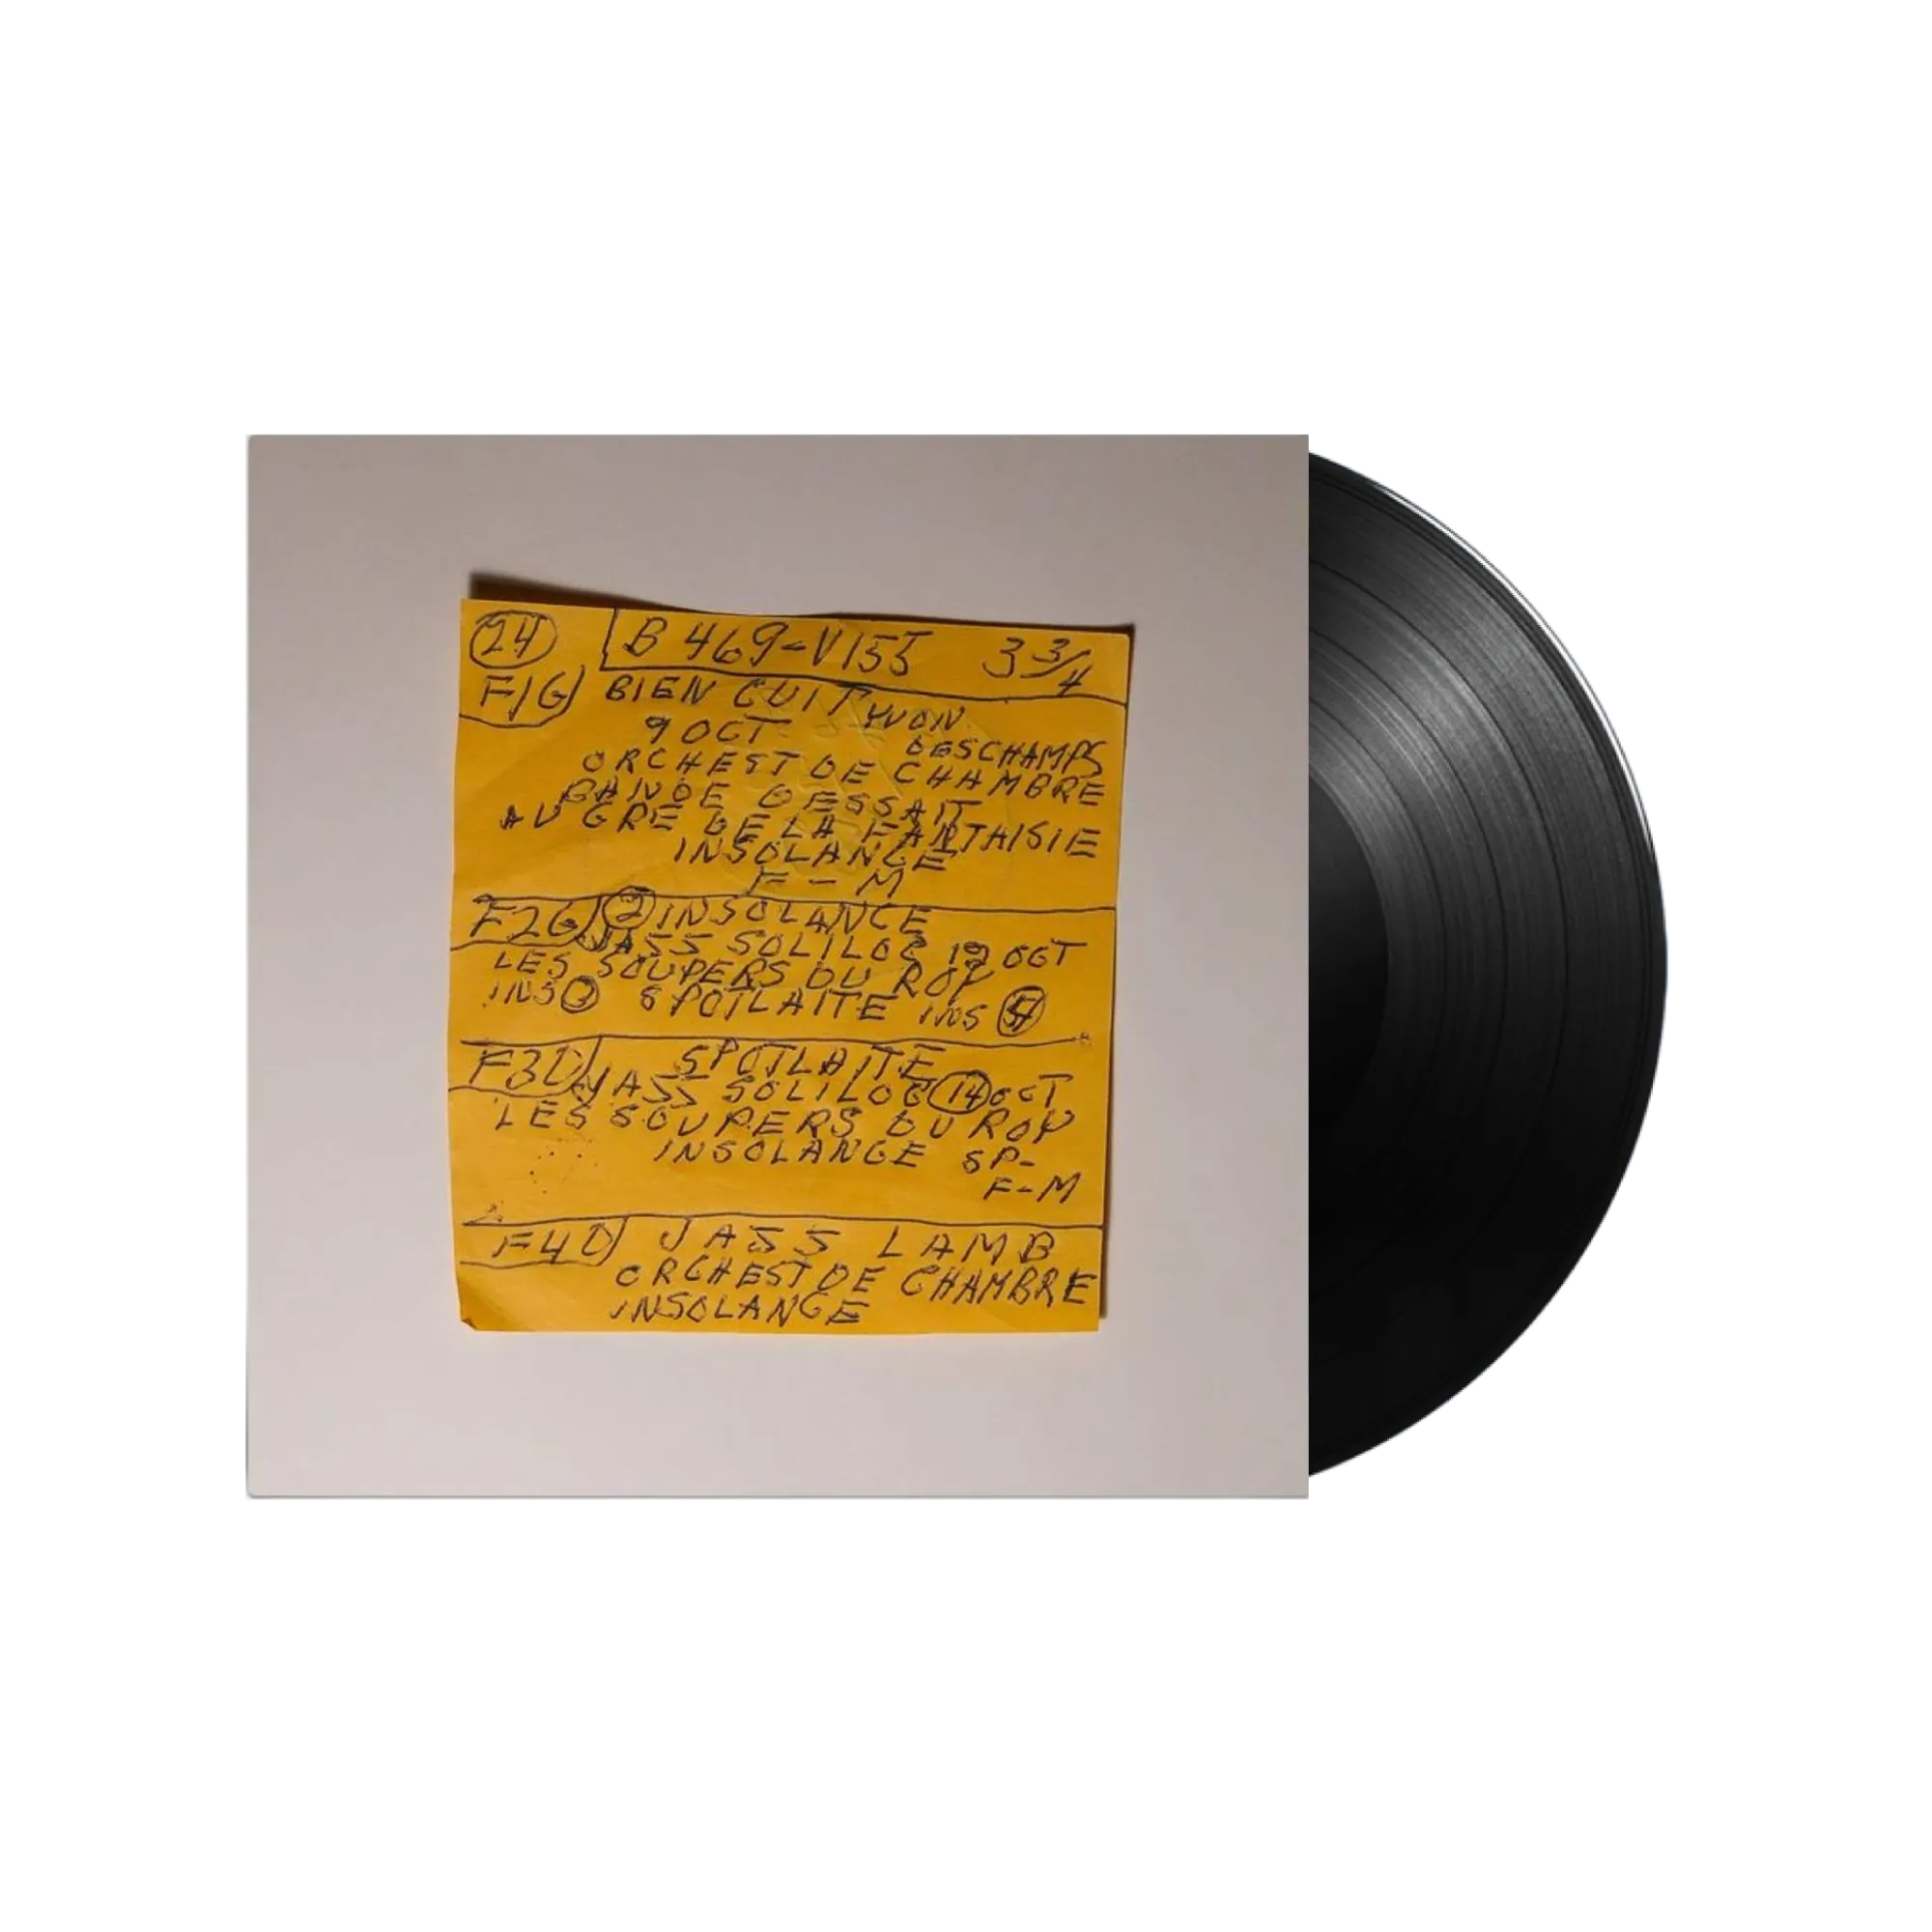 24 B 469-V155 3 3/4
F1G BIEN CUIT YVON
9 OCT DESCHAMPS
ORCHEST DE CHAMBRE
BANDE DESSAIT
AU GRE DE LA FANTHISIE
INSOLANCE
F-M
F2G 2 INSOLANCE
JASS SOLILOC 12 OCT
LES SOUPERS DU ROY
INS SPOTLAITE INS
F3D SPOTLAITE
JASS SOLILOC 14 OCT
LES SOUPERS DU ROY
INSOLANCE SP-
F-M
F4D JASS LAMB
ORCHEST DE CHAMBRE
INSOLANCE